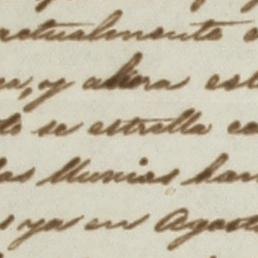 actualmente
a, y ahora est
se estrella co
las lluvias han
s ya en Agosto